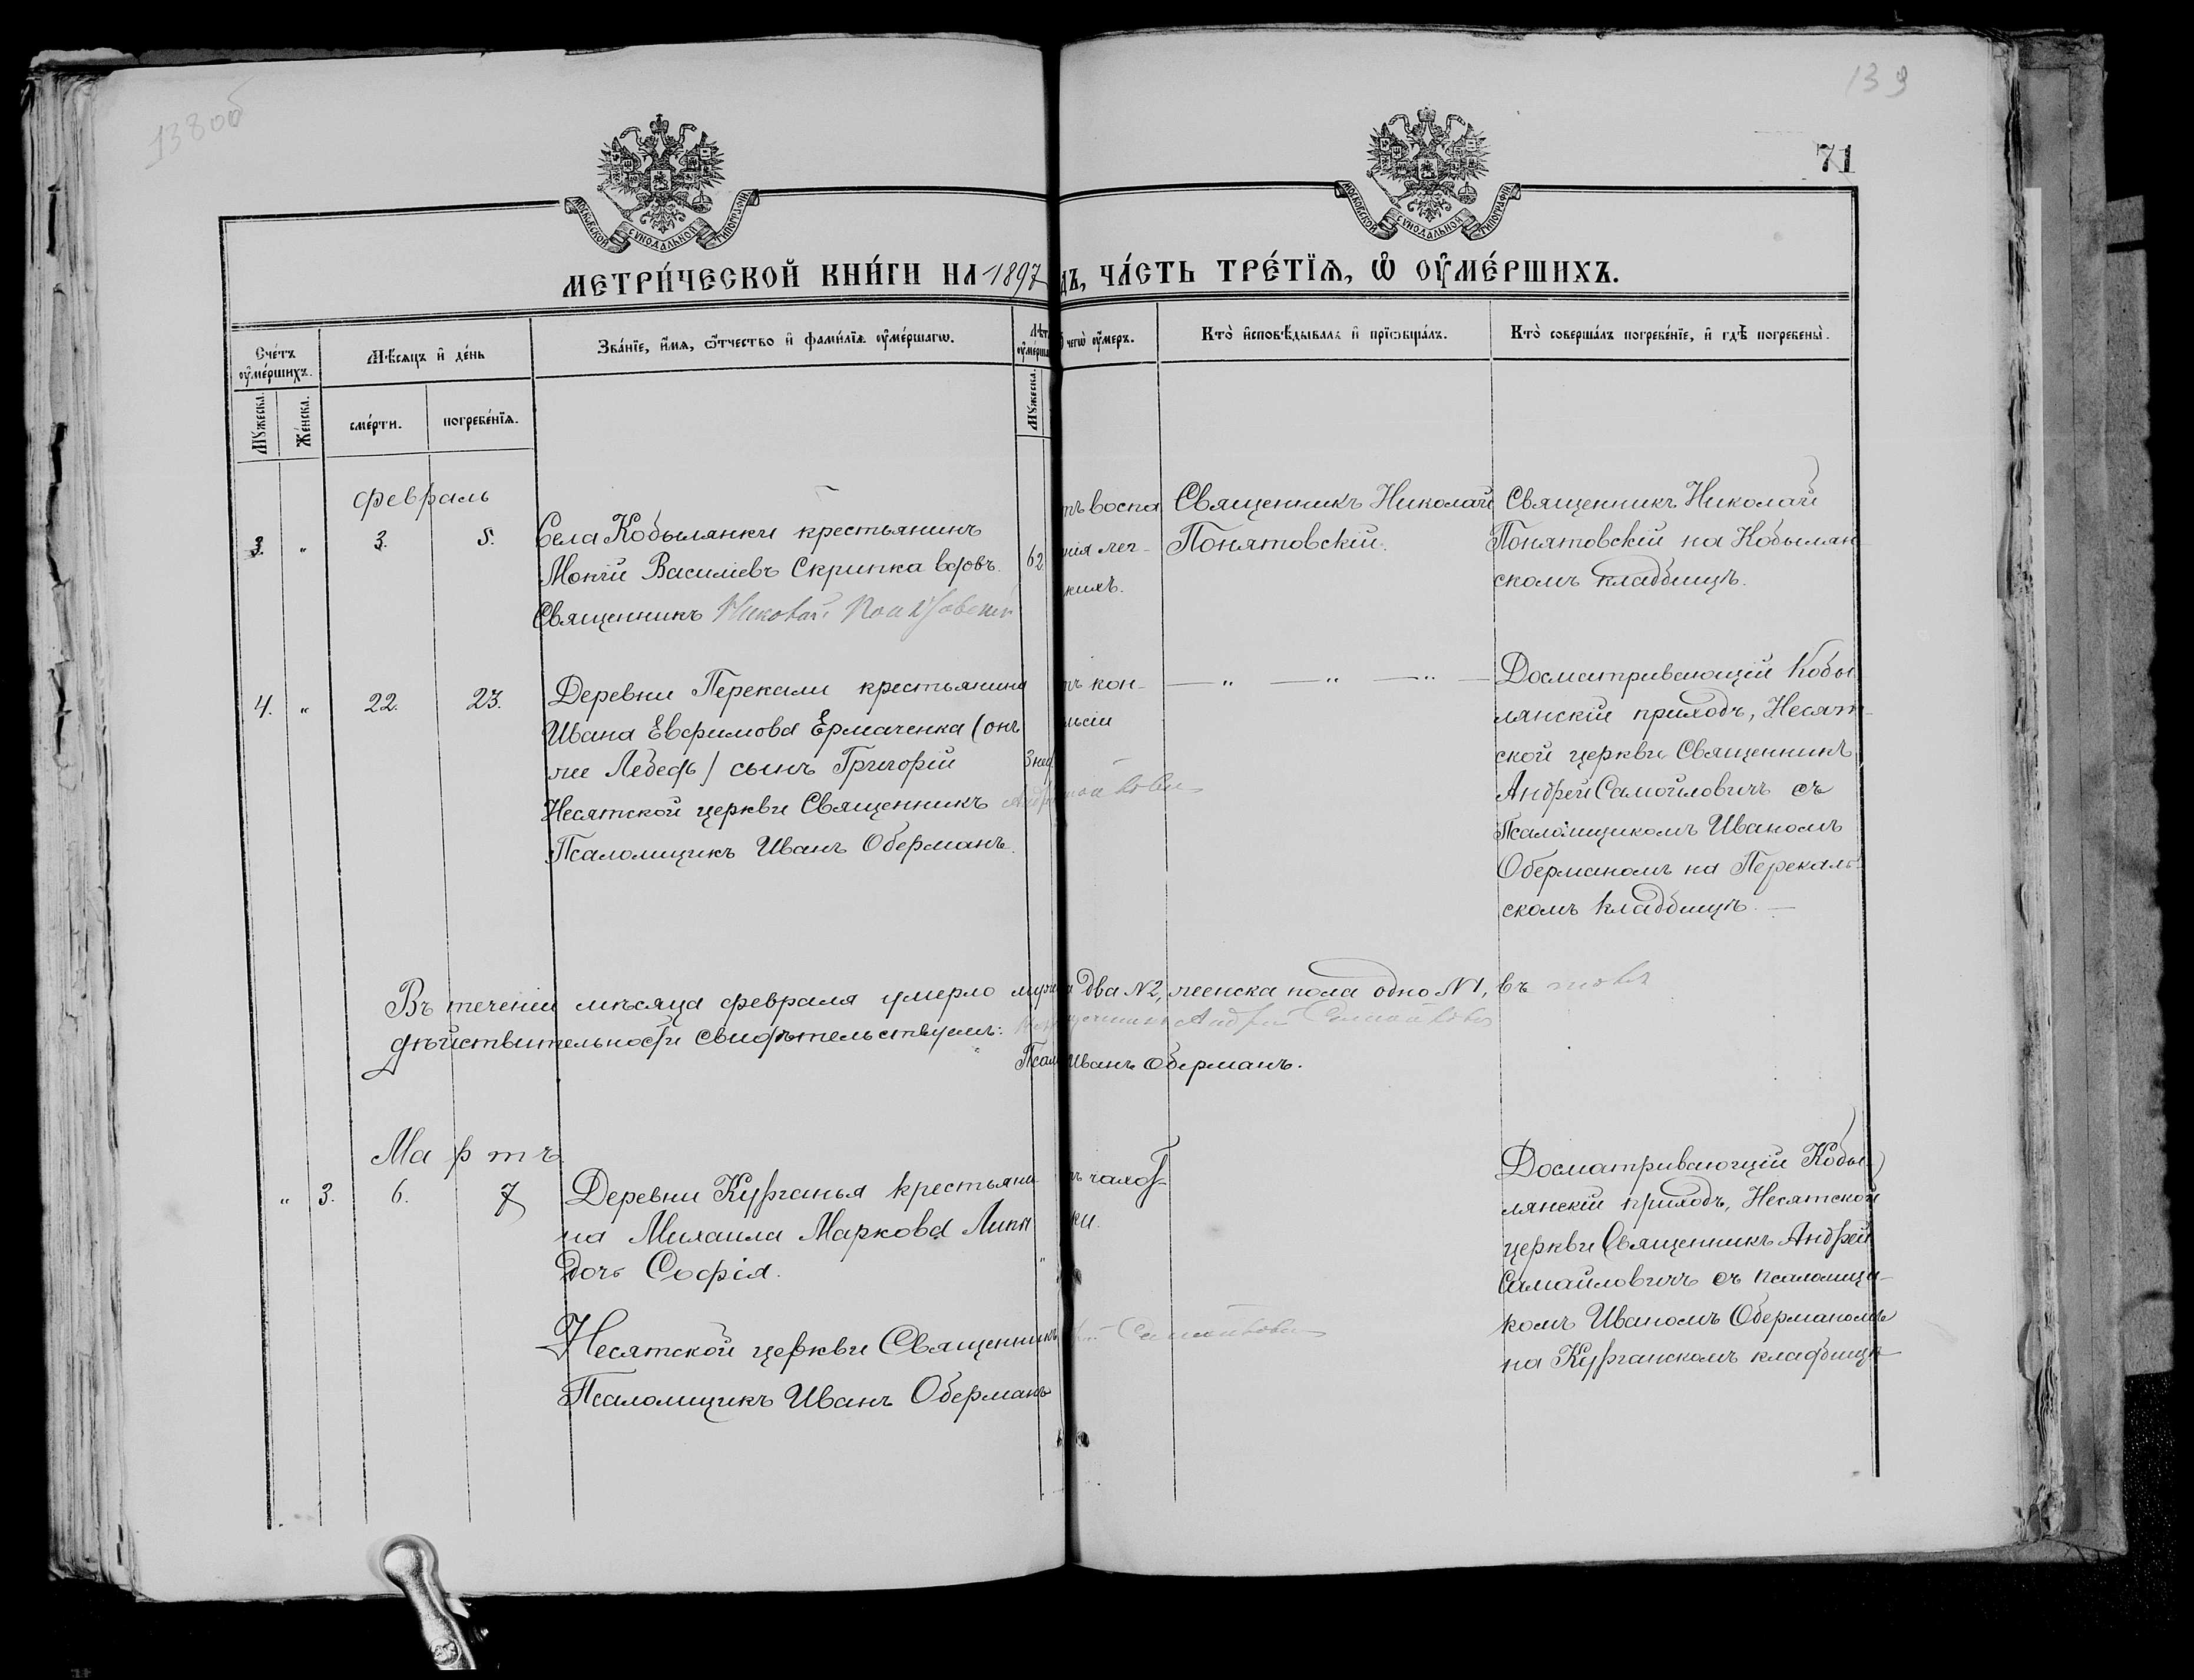 138об
139
71
МОСКОВСКОЙ СУНОДАЛЬНОЙ ТИПОГРАФІИ
МОСКОВСКОЙ СУНОДАЛЬНОЙ ТИПОГРАФІИ
МЕТРИ́ЧЕСКОЙ КНИ́ГИ НА 1897
ДЪ, ЧА́СТЬ ТРЕ́ТЇѦ, Ѡ҆ ОУ҆МЕ́РШИХЪ.
Сче́тъ оу҆ме́ршихъ.
Мѣсяцъ и҆ де́нь
Зва́нїе, и҆́мя, ѻ҆́тчество и҆ фами́лїѧ оу҆ме́ршагѡ.
Лѣт
оу҆ме́рша
чегѡ̀ оу҆́меръ.
Кто̀ и҆сповѣ́дывалъ и҆ прїѡбща́лъ.
Кто̀ соверша́лъ погребе́нїе, и҆ гдѣ̀ погребены̀.
Мꙋжеска.
Же́нска.
сме́рти.
погребе́нїѧ.
Мꙋжеска.
Февраль
3. " 3. 5. Села Кобылянки крестьянинъ
Мокій Василіевъ Скрипка вдовъ. 62
Священникъ Николай
тъ воспа
нія лег-
кихъ.
Священникъ Николай
Понятовскій.
Священникъ Николай
Понятовскій на Кобылян
скомъ кладбищѣ.
4. " 22. 23. Деревни Перекали крестьянина
Ивана Евфимова Ермаченка (онъ
же Лебедь) сынъ Григорій 3 нед
Несятской церкви Священникъ
Псаломщикъ Иванъ Оберманъ.
тъ кон-
льсіи
— " — " — " —
Досматривающій Кобы
лянскій приходъ, Несят-
ской церкви Священникъ
Андрей Самойловичъ съ
Псаломщикомъ Иваномъ
Оберманомъ на Перекаль
скомъ кладбищѣ. —
Въ теченіи мѣсяца февраля умерло муж два №2, женска пола одно №1, въ
дѣйствительности свидѣтельствуемъ: Андрей
Псал Иванъ Оберманъ.
Мартъ
" 3. 6. 7 Деревни Курганья крестьяни
на Михаила Маркова Липк
дочь Софія. "
Несятской церкви Священникъ
Псаломщикъ Иванъ Оберманъ
ъ чахот
ки.
Досматривающій Кобы
лянскій приходъ, Несятской
церкви Священникъ Андрей
Самайловичъ съ псаломщи-
комъ Иваномъ Оберманомъ
на Курганскомъ кладбищѣ